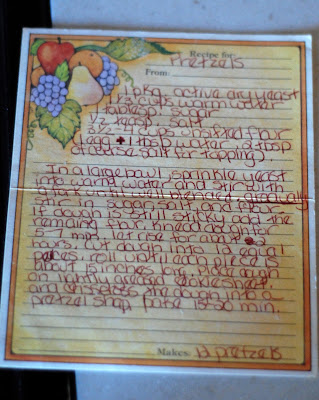 Recipe for:
Pretzels
From:
1 pkg. active dry yeast
1 1/2 cups warm water
1 tablesp. sugar
1/2 teasp. salt
3 1/2 - 4 cups unsifted flour
1 egg + 1 tbsp water, 2 tbsp
coarse salt for topping).
In a large bowl, sprinkle yeast
into warm water and stir with
well blended, gradually
stir in sugar salt and
If dough is still sticky add the
remaining flour. Knead dough for
5-7 mins. Let rise for about
hours. Cut dough into equal
pieces, roll until each piece is
about 15 inches long. Place dough
on lightly greased cookie sheet,
and the dough into a
pretzel shape. 15-20 min.
Makes: 12 pretzels